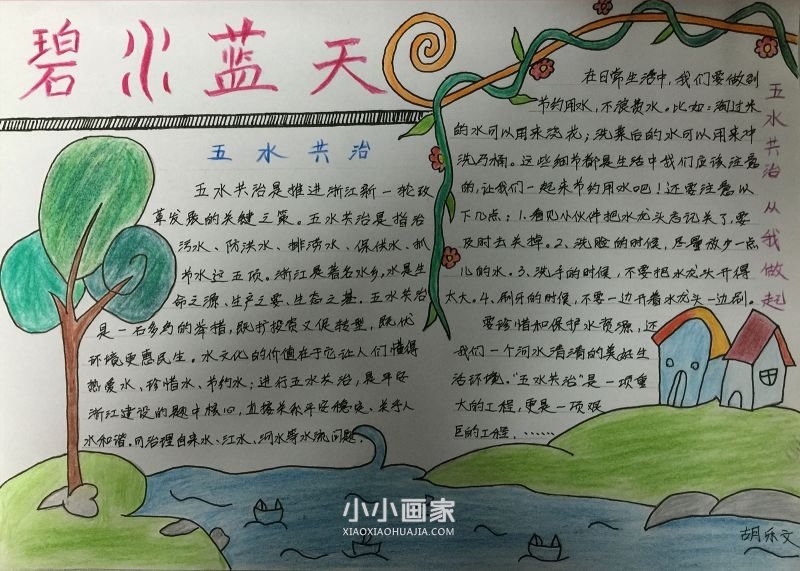 碧水蓝天
五水共治
五水共治是推进浙江新一轮改
革发展的关键之策。五水共治是指治
污水、防洪水、排涝水、保供水、抓
节水这五项。浙江是著名水乡,水是生
命之源、生产之要、生态之基。五水共治
是一石多鸟的举措,既扩投资又促转型,既优
环境更惠民生。水文化的价值在于它让人们懂得
热爱水、珍惜水、节约水;进行五水共治,是平安
浙江建设的题中惟旧,直接关系平安稳定、关乎人
水和谐。可治理自来水、江水、河水等水流问题。
在日常生活中,我们要做到
节约用水,不浪费水。比如:淘过米
的水可以用来浇花;洗菜后的水可以用来冲
洗马桶。这些细节都是生活中我们应该注意
的,让我们一起来节约用水吧!还要注意以
下几点:1.看见小伙伴把水龙头忘记关了,要
及时去关掉。2、洗脸的时候,尽量放少一点
儿的水。3、洗手的时候,不要把水龙头开得
太大。4、刷牙的时候,不要一边开着水龙头一边刷。
要珍惜和保护水资源,还
我们一个河水清清的美好生
活环境。"五水共治"是一项重
大的工程,更是一项艰
巨的工程。……
五水共治从我做起
小小画家
XIAOXIAOHUAJIA.COM
胡乐文